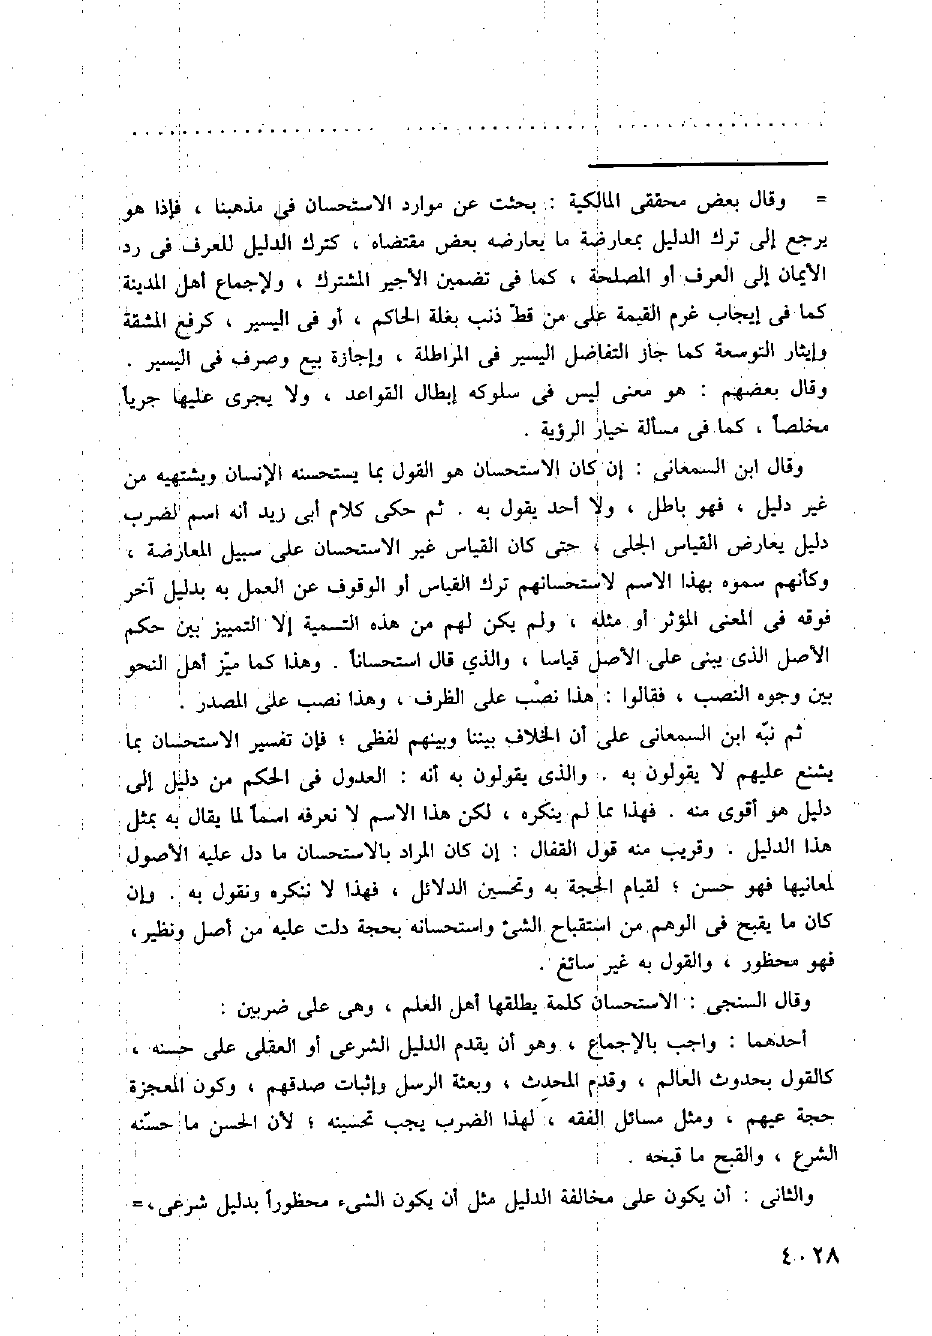 = وقال بعض محققى المالكية : بحثت عن موارد الاستحسان فى مذهبنا ، فإذا هو
يرجع إلى ترك الدليل بمعارضة ما يعارضه بعض مقتضاه ، كترك الدليل للعرف فى رد
الأيمان إلى العرف أو المصلحة ، كما فى تضمين الأجير المشترك ، ولإجماع أهل المدينة
كما فى إيجاب غرم القيمة على من قطّ ذنب بغلة الحاكم ، أو فى اليسير ، كرفع المشقة
وإيثار التوسعة كما جاز التفاضل اليسير فى المراطلة ، وإجازة بيع وصرف فى اليسير .
وقال بعضهم : هو معنى ليس فى سلوكه إبطال القواعد ، ولا يجرى عليها جرياً
مخلصاً ، كما فى مسألة خيار الرؤية .
وقال ابن السمعانى : إن كان الاستحسان هو القول بما يستحسنه الإنسان ويشتهيه من
غير دليل ، فهو باطل ، ولا أحد يقول به . ثم حكى كلام أبى زيد أنه اسم لضرب
دليل يعارض القياس الجلى ، حتى كان القياس غير الاستحسان على سبيل المعارضة ،
وكأنهم سموه بهذا الاسم لاستحسانهم ترك القياس أو الوقوف عن العمل به بدليل آخر
فوقه فى المعنى المؤثر أو مثله ، ولم يكن لهم من هذه التسمية إلا التمييز بين حكم
الأصل الذى يبنى على الأصل قياسا ، والذي قال استحساناً . وهذا كما ميّز أهل النحو
بين وجوه النصب ، فقالوا : هذا نصْب على الظرف ، وهذا نصب على المصدر .
ثم نبّه ابن السمعانى على أن الخلاف بيننا وبينهم لفظى ؛ فإن تفسير الاستحسان بما
يشنع عليهم لا يقولون به . والذى يقولون به أنه : العدول فى الحكم من دليل إلى
دليل هو أقوى منه . فهذا مما لم ينكره ، لكن هذا الاسم لا نعرفه اسماً لما يقال به بمثل
هذا الدليل . وقريب منه قول القفال : إن كان المراد بالاستحسان ما دل عليه الأصول
لمعانيها فهو حسن ؛ لقيام الحجة به وتحسين الدلائل ، فهذا لا ننكره ونقول به . وإن
كان ما يقبح فى الوهم من استقباح الشئ واستحسانه بحجة دلت عليه من أصل ونظير ،
فهو محظور ، والقول به غير سائغ .
وقال السنجى : الاستحسان كلمة يطلقها أهل العلم ، وهى على ضربين :
أحدهما : واجب بالإجماع ، وهو أن يقدم الدليل الشرعى أو العقلى على حسنه ،
كالقول بحدوث العالم ، وقدم المحدث ، وبعثة الرسل وإثبات صدقهم ، وكون المعجزة
حجة عيهم ، ومثل مسائل الفقه ، لهذا الضرب يجب تحسينه ؛ لأن الحسن ما حسّنه
الشرع ، والقبح ما قبحه .
والثانى : أن يكون على مخالفة الدليل مثل أن يكون الشيء محظوراً بدليل شرعى ،=
٤٠٢٨